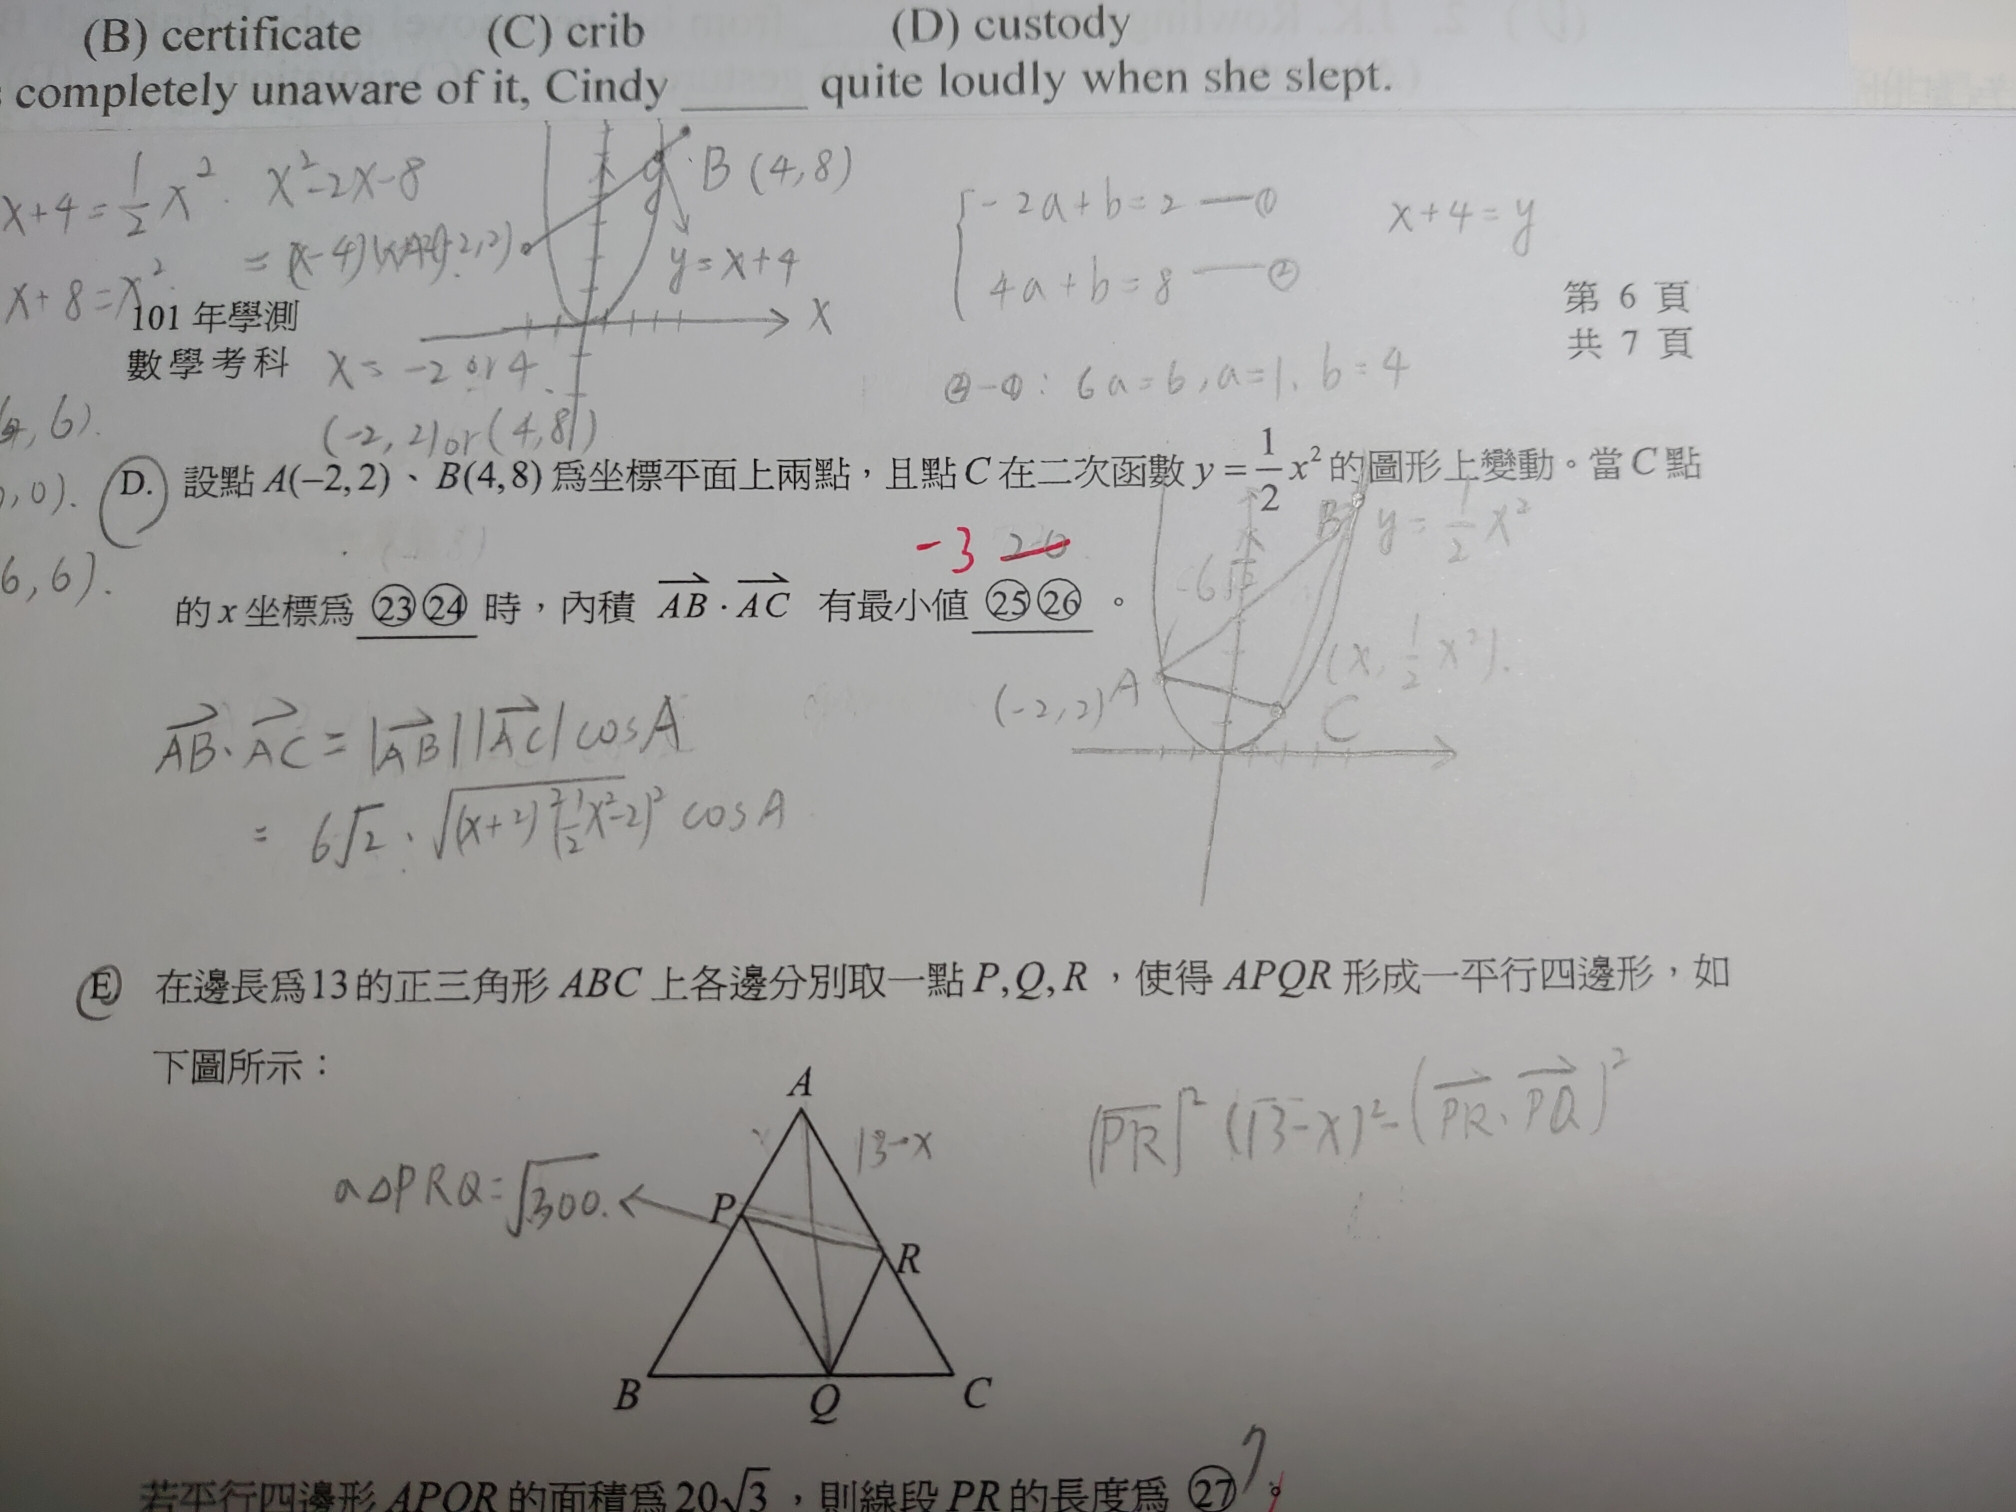 (B) certificate (C) crib (D) custody
completely unaware of it, Cindy ______ quite loudly when she slept.
x+4=1/2x² x²-2x-8 B (4,8)
-2a+b=2 —① x+4=y
=(x-4) y=x+4
4a+b=8 —②
x+8=x² x
101 年學測 第 6 頁
數學考科 共 7 頁
x=-2 or 4
②-①: 6a=6, a=1, b=4
, 6).
(-2,2)or(4,8)
, 0).
D. 設點 A(−2,2)、B(4,8) 為坐標平面上兩點，且點 C 在二次函數 y = 1/2 x² 的圖形上變動。當 C 點
B y=1/2x²
-3 20
6,6).
的 x 坐標為 ㉓㉔ 時，內積 AB·AC 有最小值 ㉕㉖ 。
(x, 1/2x²).
(-2,2) A C
AB·AC=|AB||AC|cosA
= 6√2·√(x+2)²(1/2x²-2)² cosA
E 在邊長為13的正三角形 ABC 上各邊分別取一點 P,Q,R ，使得 APQR 形成一平行四邊形，如
下圖所示：
A
13-x
|PR|² (13-x)²-(PR·PQ)²
a△PRQ=√300.
P
R
B Q C
7
若平行四邊形 APQR 的面積為 20√3 ，則線段 PR 的長度為 ㉗ 。